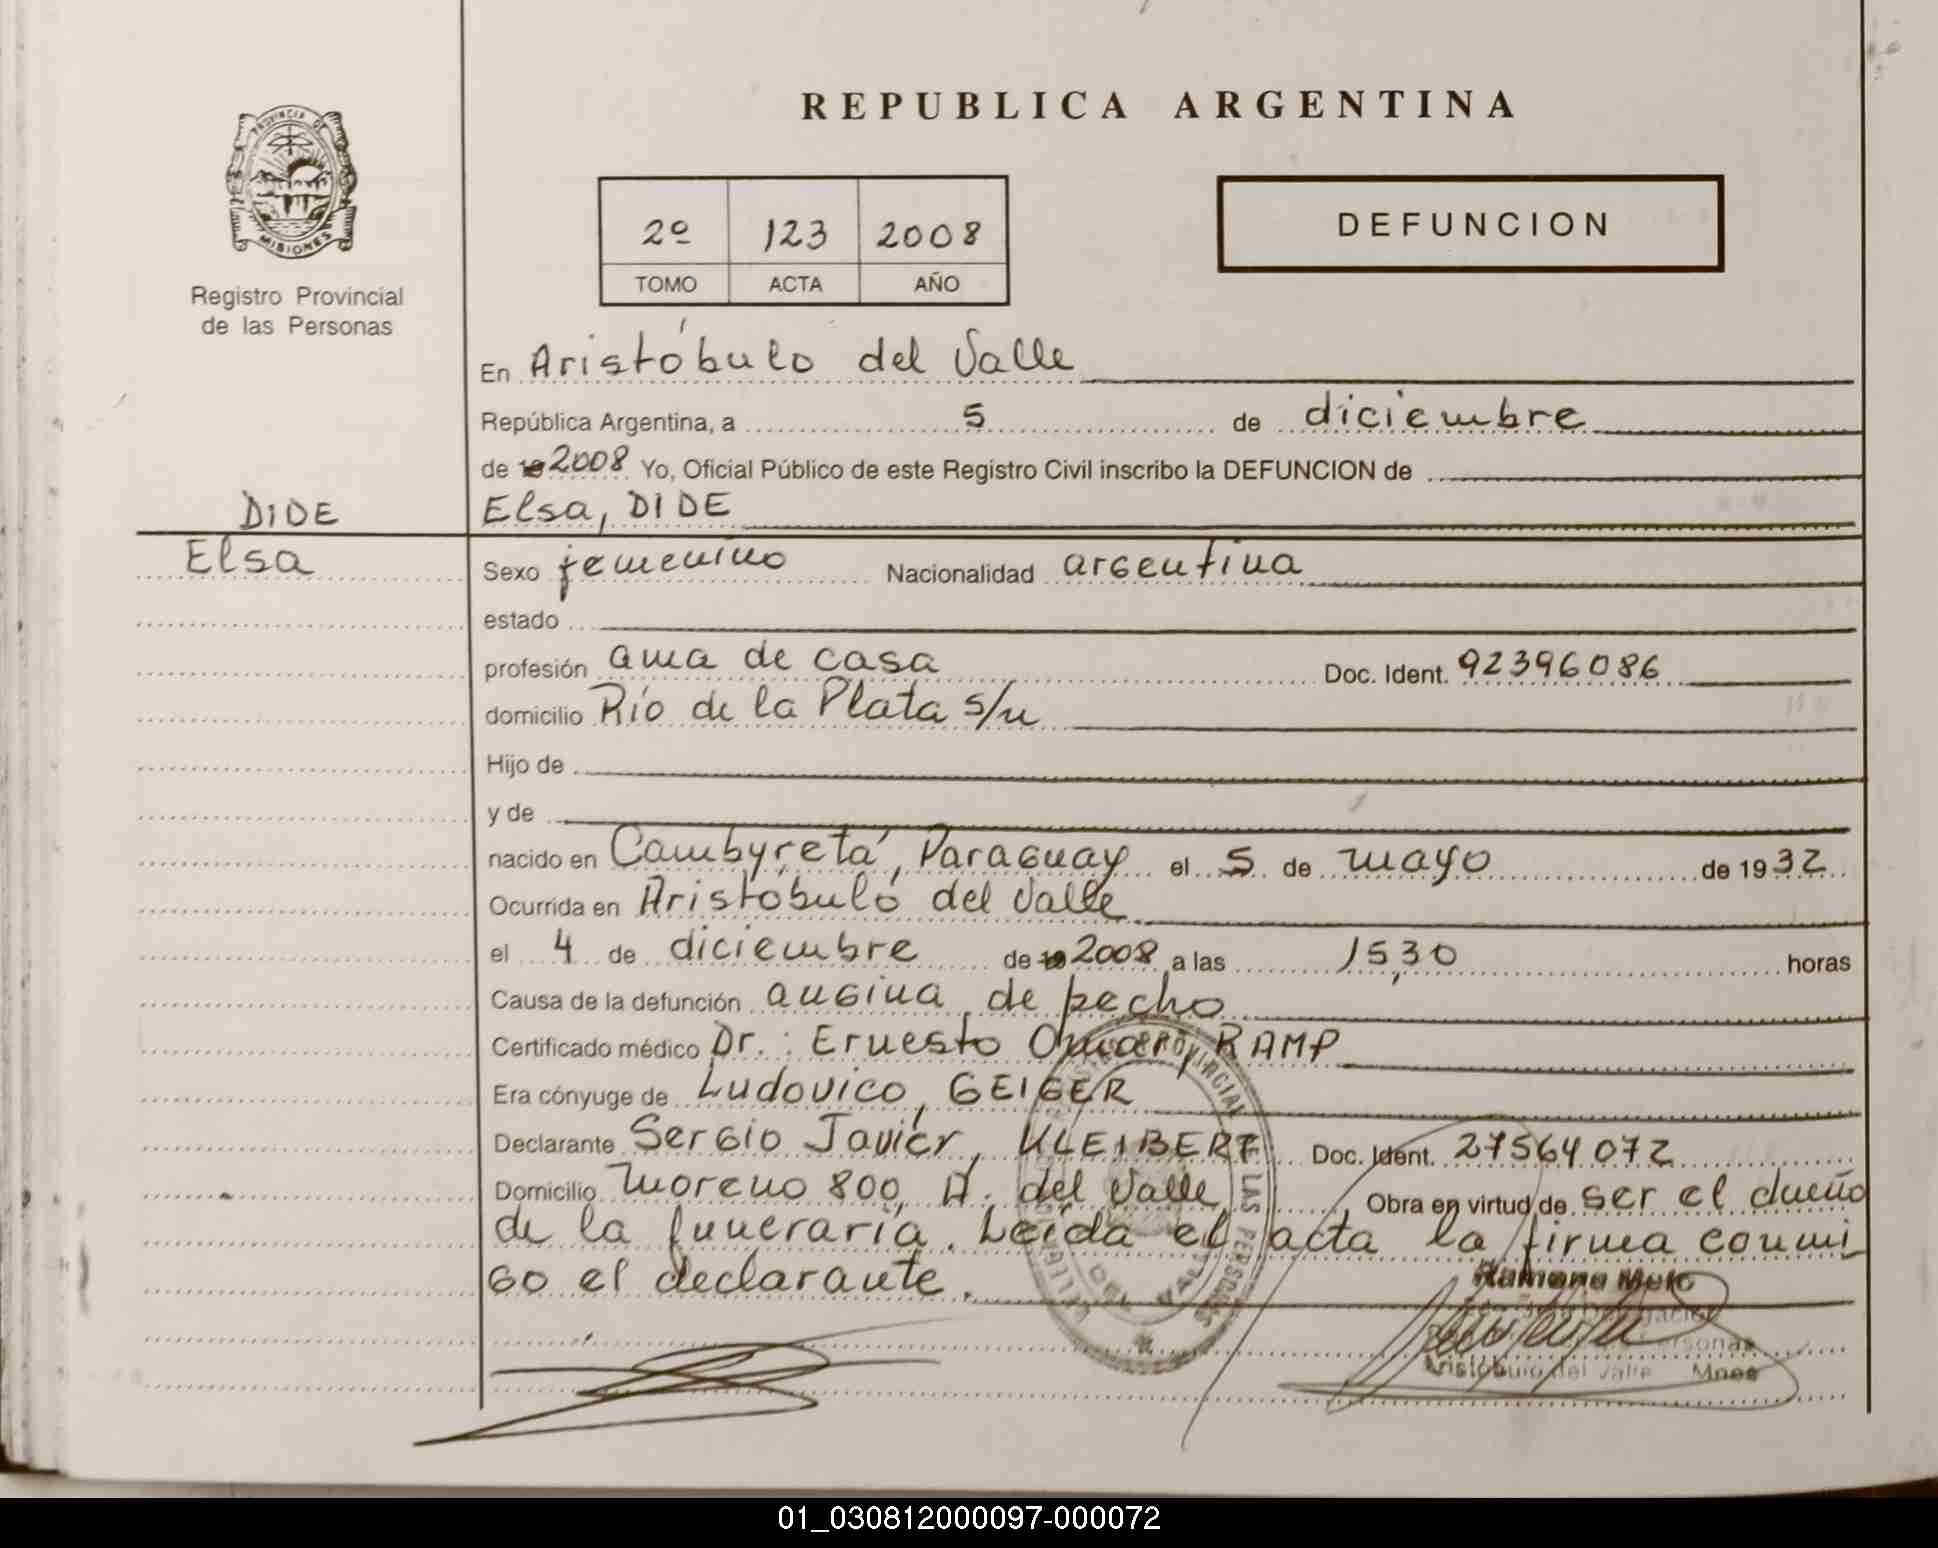 REPUBLICA ARGENTINA
PROVINCIA DE
MISIONES
Registro Provincial
de las Personas
2º 123 2008
TOMO ACTA AÑO
DEFUNCION
En Aristóbulo del Valle
República Argentina, a 5 de diciembre
de 19 2008 Yo, Oficial Público de este Registro Civil inscribo la DEFUNCION de
DIDE
Elsa, DIDE
Elsa
Sexo femenino Nacionalidad argentina
estado
profesión ama de casa Doc. Ident. 92396086
domicilio Río de la Plata s/n
Hijo de
y de
nacido en Cambyretá, Paraguay el 5 de mayo de 1932
Ocurrida en Aristóbulo del Valle
el 4 de diciembre de 19 2008 a las 15,30 horas
Causa de la defunción angina de pecho
Certificado médico Dr.: Ernesto Omar, RAMP
Era cónyuge de Ludovico, GEIGER
Declarante Sergio Javier, KLEIBERT Doc. Ident. 27564072
Domicilio Moreno 800, A. del Valle, Obra en virtud de ser el dueño
de la funeraria. Leída el acta la firma conmi
go el declarante.
PROVINCIAL
LAS PERSONAS
DEL VALLE
Ramona Melo
Aristóbulo del Valle Mnes
01_030812000097-000072